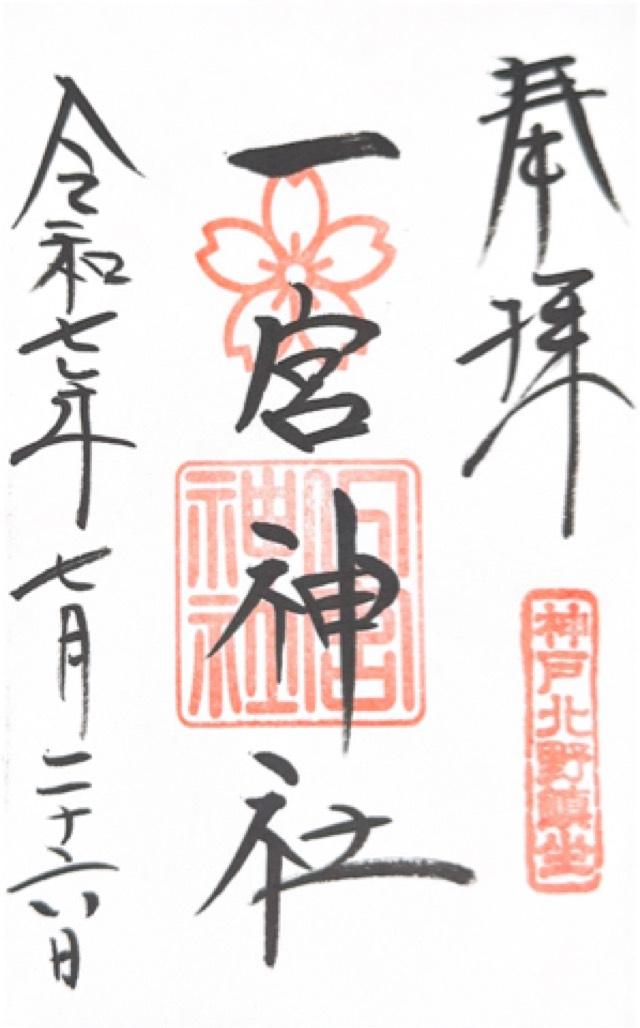 奉拝
神戸北野鎮坐
一宮神社
一宮神社
令和七年七月二十六日